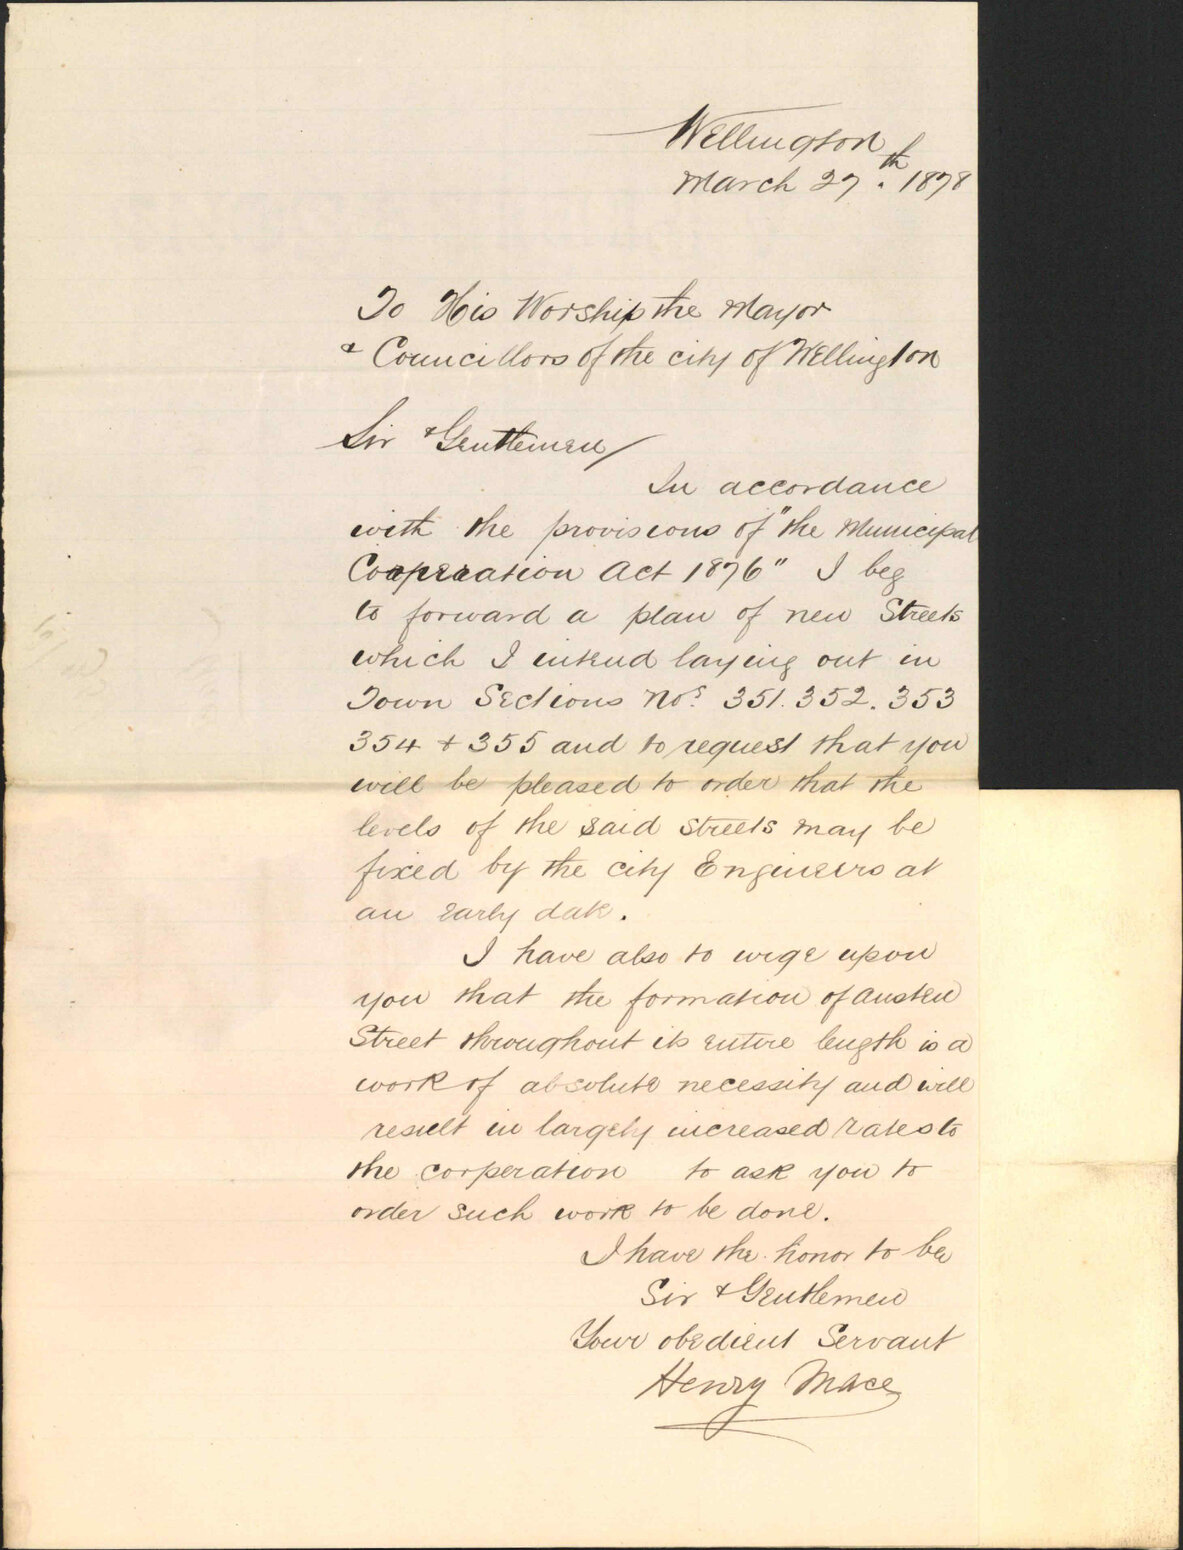 Wellington
March 27th. 1878
To His Worship the Mayor
& Councillors of the city of Wellington
Sir & Gentlemen/
In accordance
with the provisions of "the Municipal
Corperation Act 1876" I beg
to forward a plan of new Streets
which I intend laying out in
Town Sections Nos. 351. 352. 353
354 & 355 and to request that you
will be pleased to order that the
levels of the said streets may be
fixed by the city Engineers at
an early date.
I have also to urge upon
you that the formation of Austen
Street throughout its entire length is a
work of absolute necessity and will
result in largely increased rates to
the corperation to ask you to
order such work to be done.
I have the honor to be
Sir & Gentlemen
Your obedient Servant
Henry Mace